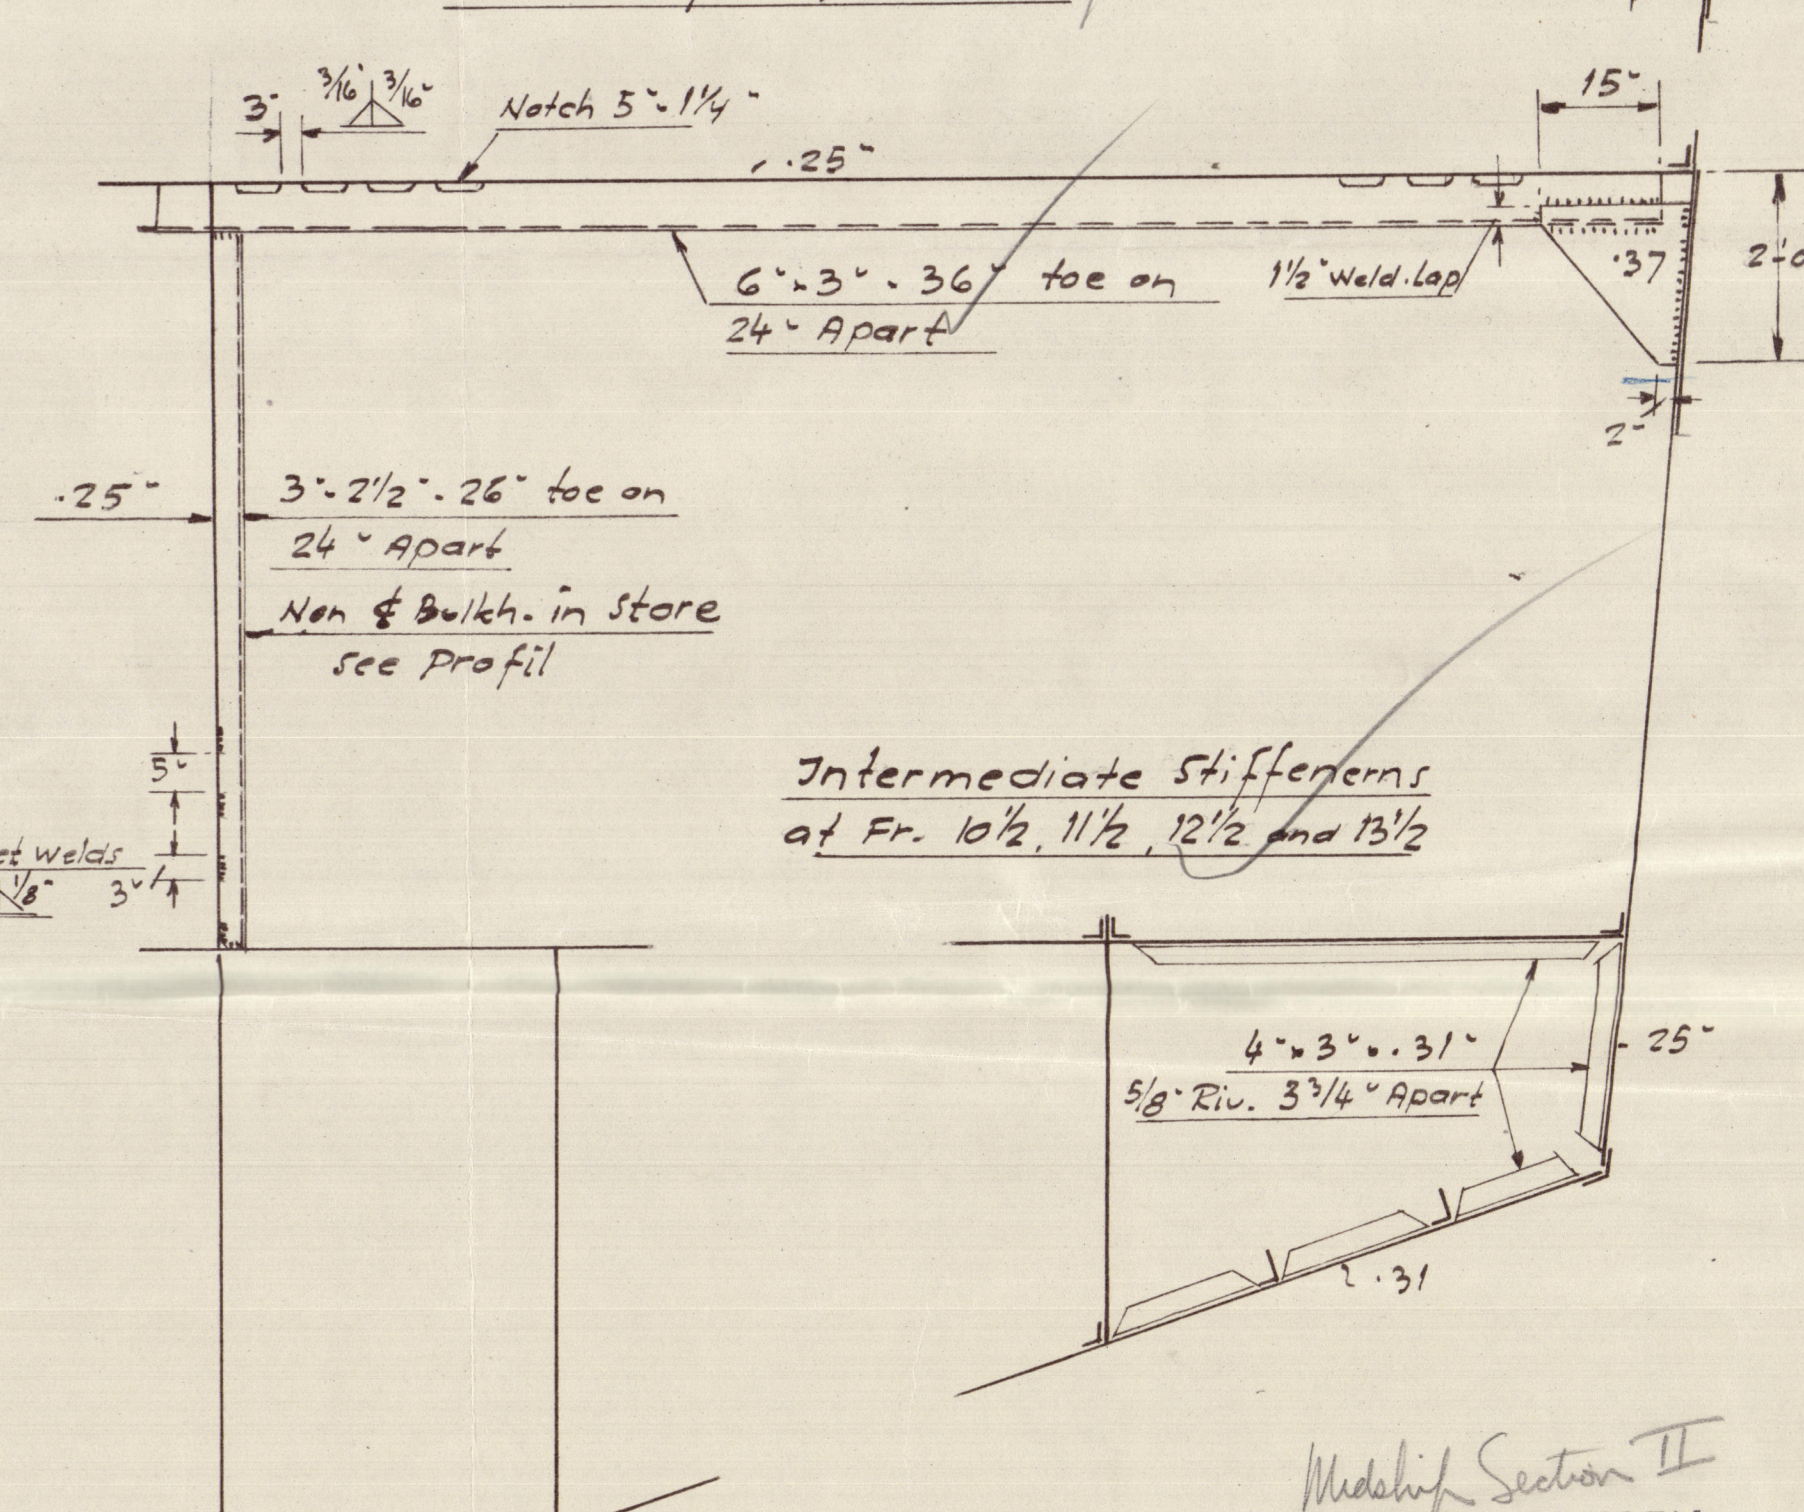 3" 3/16" 3/16"
Notch 5"-1 1/4"
.25"
15"
6"x3"-36" toe on
24" Apart
1 1/2" Weld.Lap
.37
2"
.25"
3"-2 1/2"-26" toe on
24" Apart
Non ¢ Bulkh. in Store
see Profil
5"
Welds
1/8" 3"
Intermediate Stiffenerns
at Fr. 10 1/2, 11 1/2, 12 1/2 and 13 1/2
4"x3"x.31"
5/8" Riv. 3 3/4" Apart
25"
.31
Midship Section II